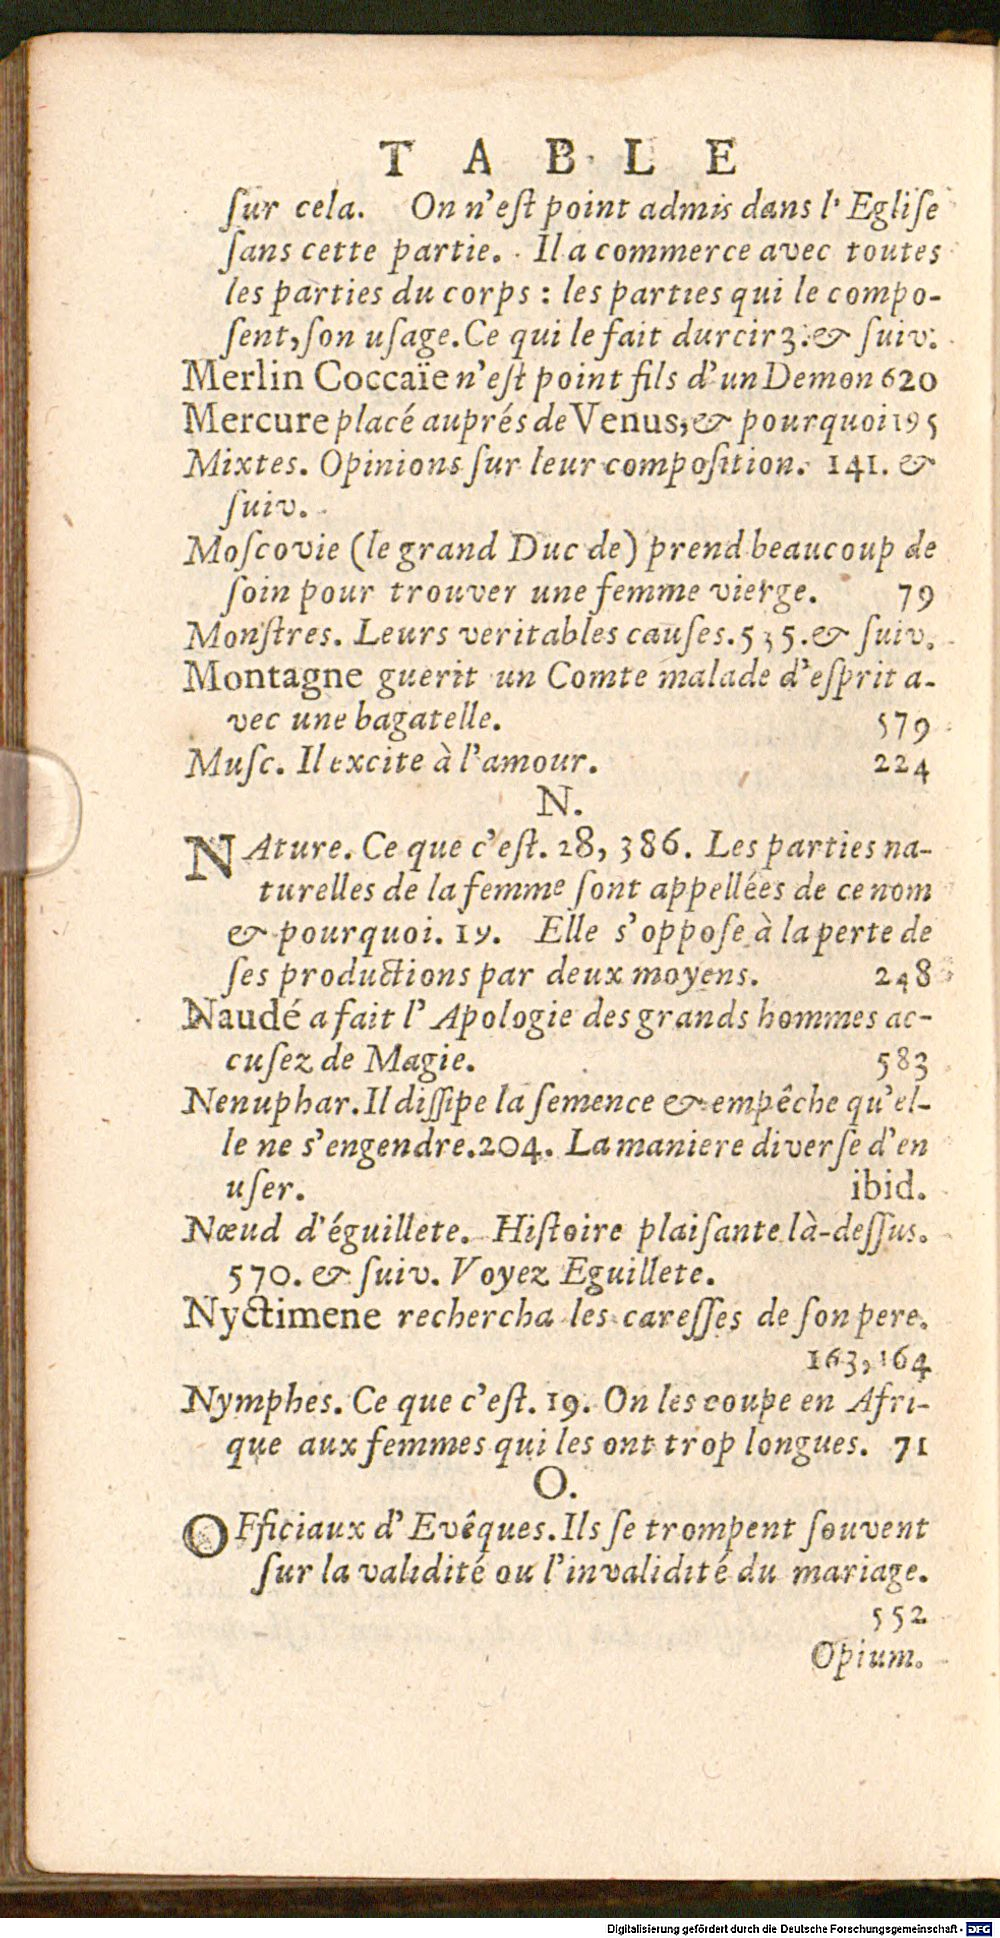 TABLE
ſur cela. On n'eſt point admis dans l'Egliſe
ſans cette partie. Il a commerce avec toutes
les parties du corps : les parties qui le compo-
ſent, ſon uſage. Ce qui le fait durcir 3. & ſuiv.
Merlin Coccaïe n'eſt point fils d'un Demon 620
Mercure placé auprés de Venus, & pourquoi 195
Mixtes. Opinions ſur leur compoſition. 141. &
ſuiv.
Moſcovie (le grand Duc de) prend beaucoup de
ſoin pour trouver une femme vierge. 79
Monſtres. Leurs veritables cauſes. 535. & ſuiv.
Montagne guerit un Comte malade d'eſprit a-
vec une bagatelle. 579
Muſc. Il excite à l'amour. 224
N.
NAture. Ce que c'eſt. 28, 386. Les parties na-
turelles de la femme ſont appellées de ce nom
& pourquoi. 19. Elle s'oppoſe à la perte de
ſes productions par deux moyens. 248
Naudé a fait l'Apologie des grands hommes ac-
cuſez de Magie. 583
Nenuphar. Il diſſipe la ſemence & empêche qu'el-
le ne s'engendre. 204. La maniere diverſe d'en
uſer. ibid.
Nœud d'éguillete. Hiſtoire plaiſante là-deſſus.
570. & ſuiv. Voyez Eguillete.
Nyctimene rechercha les careſſes de ſon pere.
163, 164
Nymphes. Ce que c'eſt. 19. On les coupe en Afri-
que aux femmes qui les ont trop longues. 71
O.
OFficiaux d'Evêques. Ils ſe trompent ſouvent
ſur la validité ou l'invalidité du mariage.
552
Opium.
Digitalisierung gefördert durch die Deutsche Forschungsgemeinschaft - DFG